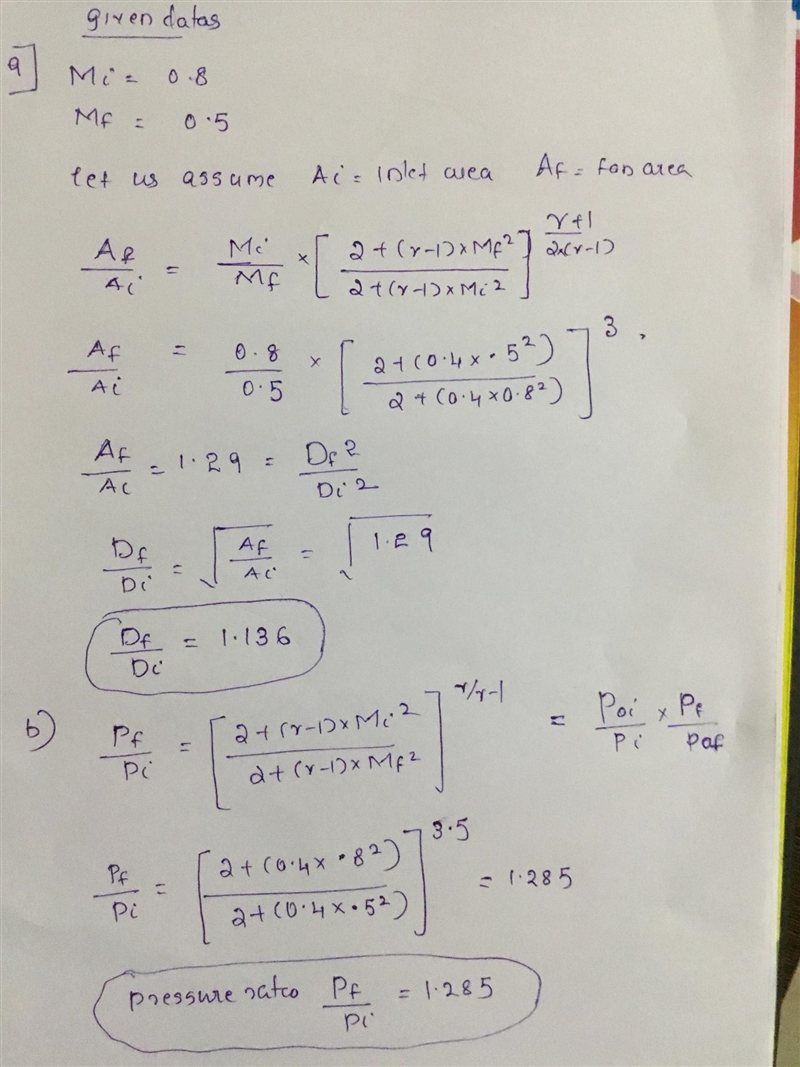 given datas
a] Mi = 0.8
Mf = 0.5
let us assume Ai = Inlet area Af = fan area
Af/Ai = Mi/Mf × [2+(r-1)×Mf²/2+(r-1)×Mi²]^r+1/2×(r-1)
Af/Ai = 0.8/0.5 × [2+(0.4×.5²)/2+(0.4×0.8²)]^3.
Af/Ai = 1.29 = Df²/Di²
Df/Di = √Af/Ai = √1.29
Df/Di = 1.136
b) Pf/Pi = [2+(r-1)×Mi²/2+(r-1)×Mf²]^r/r-1 = Poi/Pi × Pf/Paf
Pf/Pi = [2+(0.4×.8²)/2+(0.4×.5²)]^3.5 = 1.285
pressure ratio Pf/Pi = 1.285